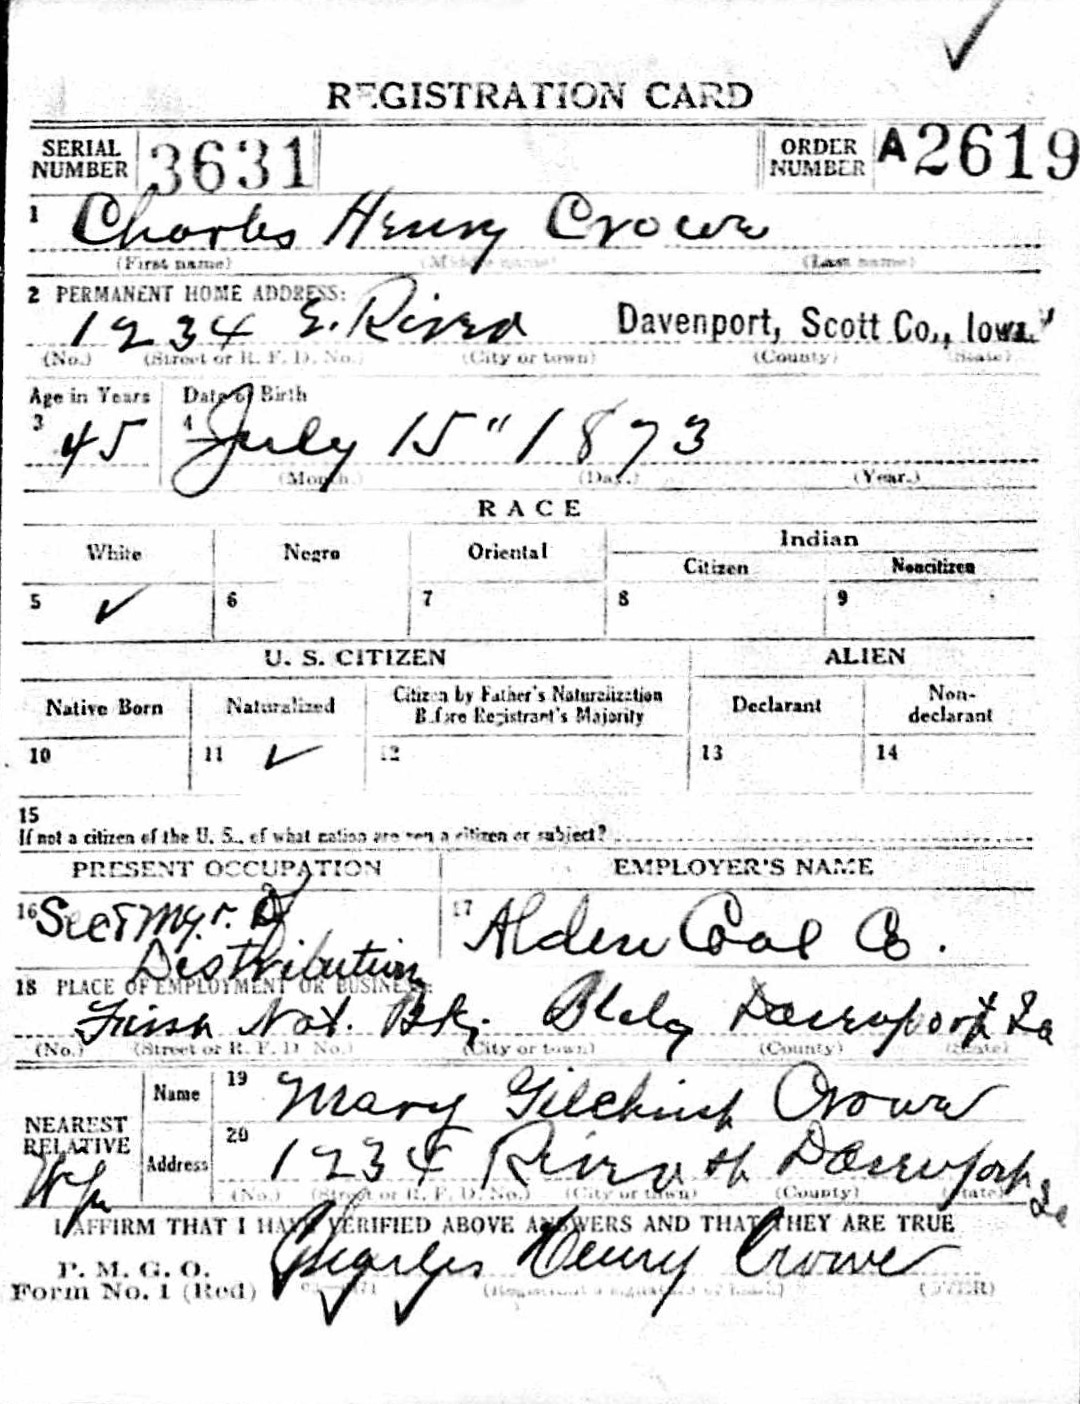 REGISTRATION CARD
SERIAL NUMBER 3631 ORDER NUMBER A2619
1 Charles Henry Crowe
(First name) (Middle name) (Last name)
2 PERMANENT HOME ADDRESS:
1234 E. River Davenport, Scott Co., Iowa
(No.) (Street or R. F. D. No.) (City or town) (County) (State)
Age in Years Date of Birth
3 45 4 July 15" 1873
(Month.) (Day.) (Year.)
RACE
White Negro Oriental Indian
Citizen Noncitizen
5 ✓ 6 7 8 9
U. S. CITIZEN ALIEN
Native Born Naturalized Citizen by Father's Naturalization Before Registrant's Majority Declarant Non-declarant
10 11 ✓ 12 13 14
15
If not a citizen of the U. S., of what nation are you a citizen or subject?
PRESENT OCCUPATION EMPLOYER'S NAME
16 Sect Mgr. 17 Alden Coal Co.
Distribution
18 PLACE OF EMPLOYMENT OR BUSINESS:
Nat. Bk. Bldg Davenport Ia
(No.) (Street or R. F. D. No.) (City or town) (County) (State)
NEAREST RELATIVE Name 19 Mary Gilchrist Crowe
Address 20 1234 River Davenport Ia
(No.) (Street or R. F. D. No.) (City or town) (County) (State)
I AFFIRM THAT I HAVE VERIFIED ABOVE ANSWERS AND THAT THEY ARE TRUE
P. M. G. O.
Form No. 1 (Red) Charles Henry Crowe
(Registrant's signature or mark) (OVER)